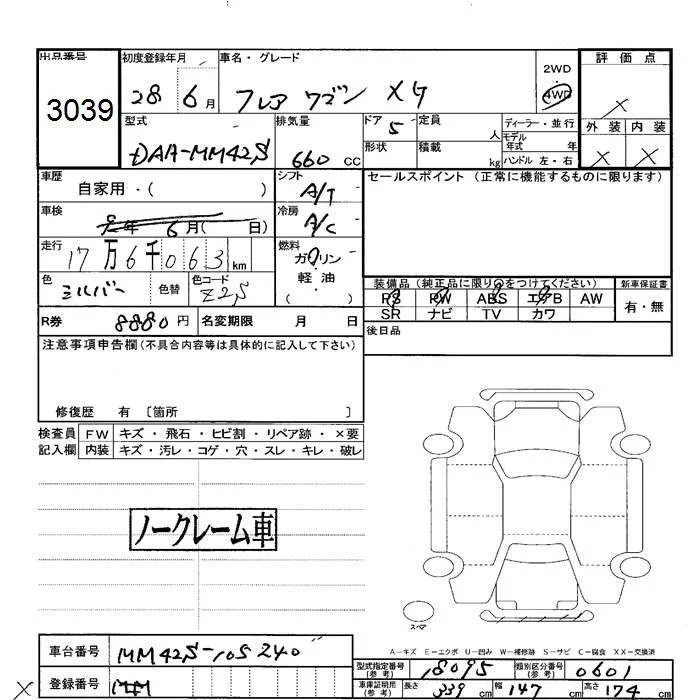 出品番号 初度登録年月 車名・グレード 2WD 評価点
3039 28 6月 フレア ワゴン XG 4WD X
型式 排気量 ドア 5 定員 人 ディーラー・並行 外装 内装
DAA-MM42S 660 CC 形状 積載 kg モデル年式 年 X X
ハンドル 左・右
車歴 シフト セールスポイント (正常に機能するものに限ります)
自家用・( ) A/T
車検 年 6月( 日) 冷房 A/C
走行 17万6千063 km 燃料 ガソリン
色 シルバー 色替 色コード Z2S 軽・油
( )
装備品 (純正品に限り○をつけてください) 新車保証書
PS PW ABS エアB AW 有・無
SR ナビ TV カワ
R券 8880円 名変期限 月 日 後日品
注意事項申告欄(不具合内容等は具体的に記入して下さい)
修復歴 有 〔箇所 〕
検査員 FW キズ・飛石・ヒビ割・リペア跡・×要
記入欄 内装 キズ・汚レ・コゲ・穴・スレ・キレ・破レ
ノークレーム車
スペア
A-キズ E-エクボ U-凹み W-補修跡 S-サビ C-腐食 XX-交換済
車台番号 MM42S-105240
型式指定番号(参考) 18095 類別区分番号(参考) 0601
X 登録番号 MM
車庫証明用(参考) 長さ 339 cm 幅 147 cm 高さ 174 cm